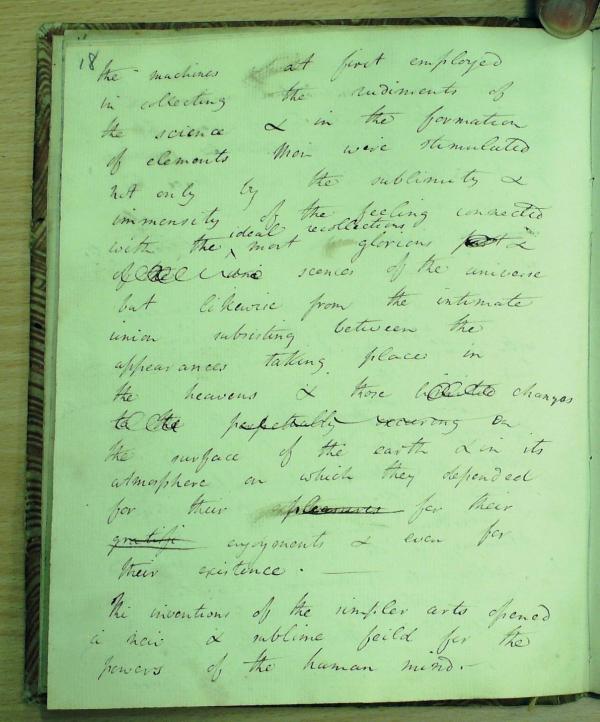 18
the machines at first employed
in collecting the rudiments of
the science & in the formation
of elements Men were stimulated
not only by the sublimity &
immensity of the feeling connected
ideal recollections
with the ^ most glorious past &
of scenes of the universe
but likewise from the intimate
union subsisting between the
appearances taking place in
the heavens & those changes
to the perpetually occuring on
the surface of the earth & in its
atmosphere on which they depended
for their pleasures for their
gratifi enjoyments & even for
their existence. —
The inventions of the simpler arts opened
a new & sublime feild for the
powers of the human mind.—